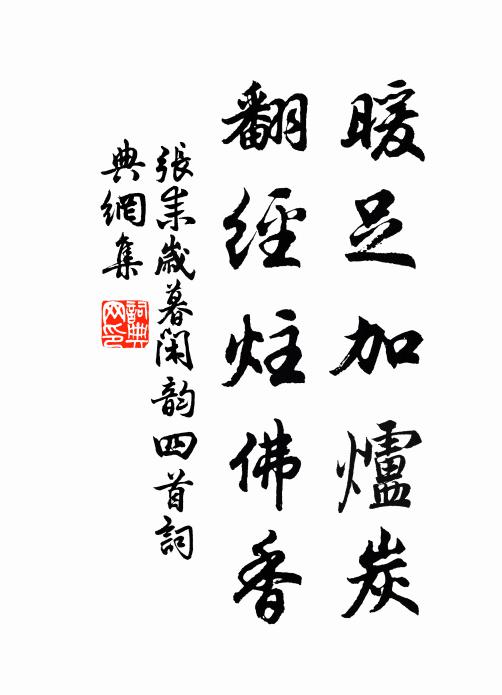 暖足加爐炭
翻經炷佛香
張耒歲暮閑韵四首詞
典網集
詞典網印